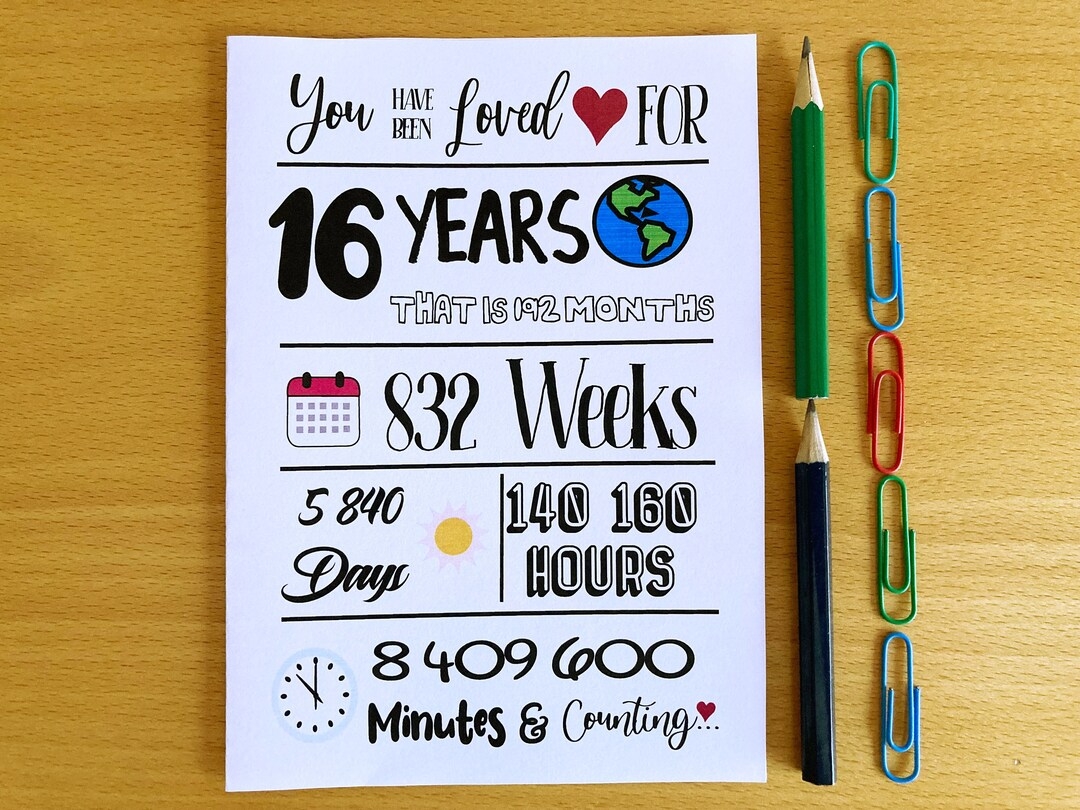 You HAVE BEEN Loved FOR
16 YEARS
THAT IS 192 MONTHS
832 Weeks
5 840
Days
140 160
HOURS
8 409 600
Minutes & Counting...